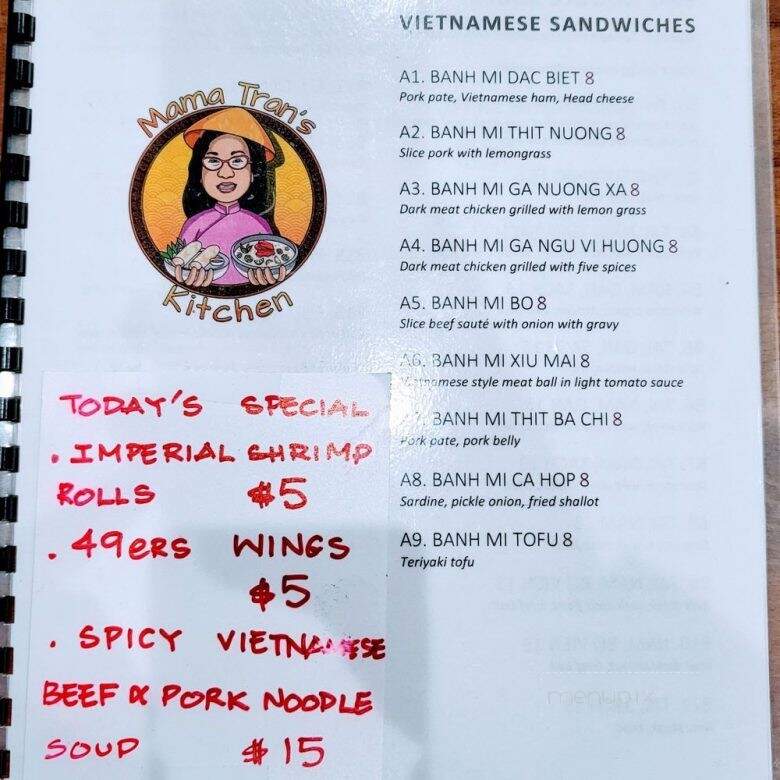 Mama Tran's
Kitchen
TODAY'S SPECIAL
. IMPERIAL SHRIMP
ROLLS $5
. 49ERS WINGS
$5
. SPICY VIETNAMESE
BEEF & PORK NOODLE
SOUP $15
VIETNAMESE SANDWICHES
A1. BANH MI DAC BIET 8
Pork pate, Vietnamese ham, Head cheese
A2. BANH MI THIT NUONG 8
Slice pork with lemongrass
A3. BANH MI GA NUONG XA 8
Dark meat chicken grilled with lemon grass
A4. BANH MI GA NGU VI HUONG 8
Dark meat chicken grilled with five spices
A5. BANH MI BO 8
Slice beef sauté with onion with gravy
A6. BANH MI XIU MAI 8
Vietnamese style meat ball in light tomato sauce
A7. BANH MI THIT BA CHI 8
Pork pate, pork belly
A8. BANH MI CA HOP 8
Sardine, pickle onion, fried shallot
A9. BANH MI TOFU 8
Teriyaki tofu